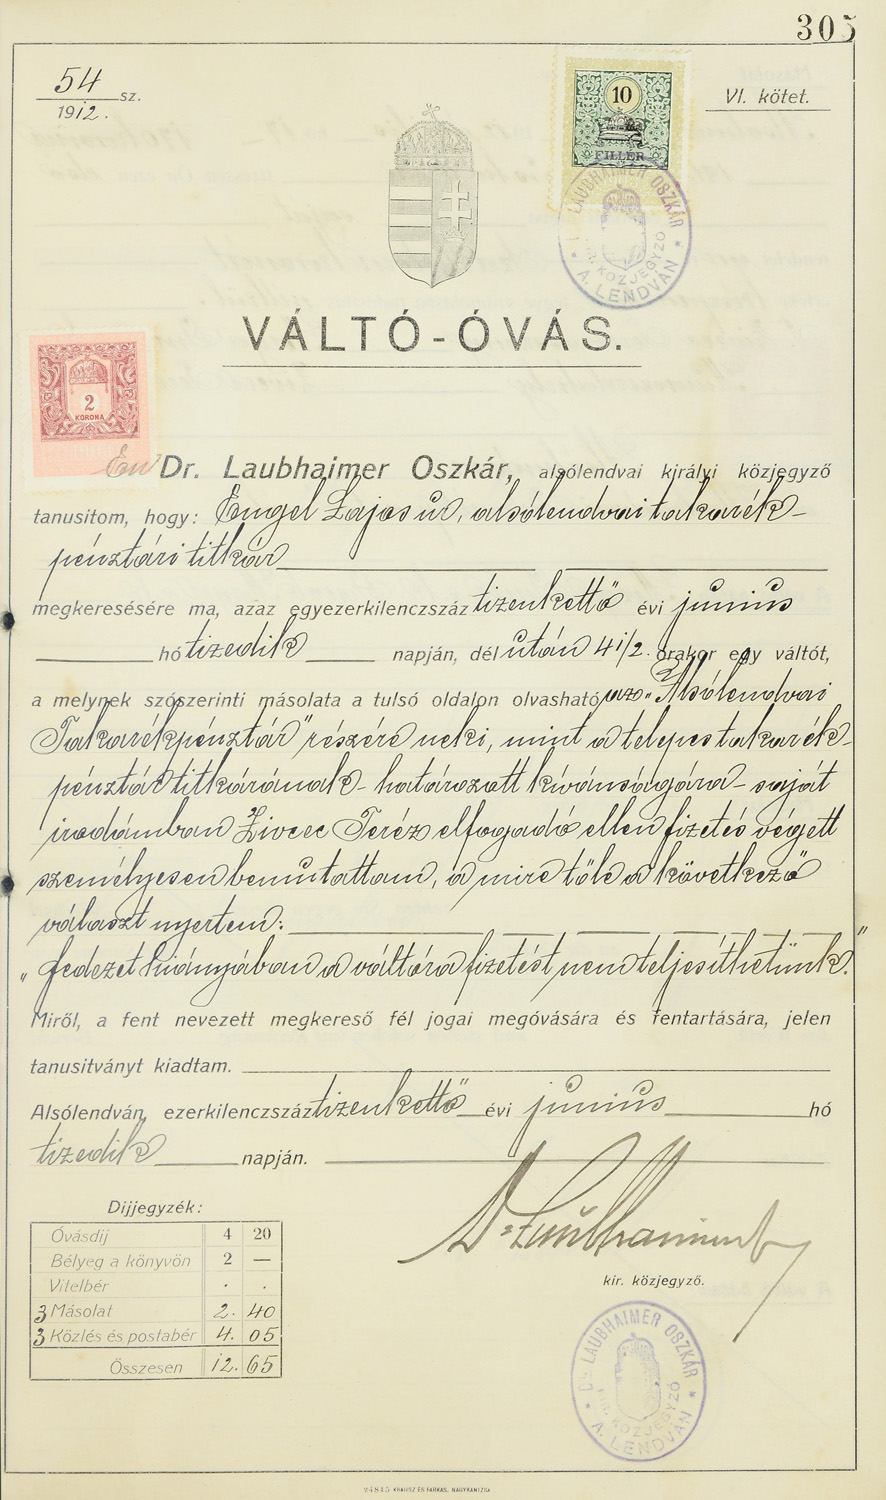 305
54 sz.
1912.
VI. kötet.
10
FILLÉR
DR LAUBHAIMER OSZKÁR
KIR. KÖZJEGYZŐ
* A. LENDVÁN *
VÁLTÓ-ÓVÁS.
2
KORONA
Én Dr. Laubhaimer Oszkár, alsólendvai királyi közjegyző
tanusitom, hogy: Engel Lajos úr, alsólendvai takarék-
pénztári titkár
megkeresésére ma, azaz egyezerkilenczszáz tizenkettő évi június
hó tizedik napján, dél után 4 1/2. órakor egy váltót,
a melynek szószerinti másolata a tulsó oldalon olvasható, az „Alsólendvai
Takarékpénztár" részére neki, mint a telepes takarék-
pénztár titkárának - határozott kívánságára - saját
irodámban Zivcec Teréz elfogadó ellen fizetés végett
személyesen bemutattam, a mire tőle a következő
választ nyertem:
„fedezet hiányában a váltóra fizetést nem teljesíthetünk."
Miről, a fent nevezett megkereső fél jogai megóvására és fentartására, jelen
tanusitványt kiadtam.
Alsólendván, ezerkilenczszáz tizenkettő évi június hó
tizedik napján.
Dr Laubhaimer
kir. közjegyző.
Dijjegyzék:
Óvásdij 4 20
Bélyeg a könyvön 2 —
Vitelbér . .
3 Másolat 2. 40
3 Közlés és postabér 4. 05
Összesen 12. 65
DR LAUBHAIMER OSZKÁR
KIR. KÖZJEGYZŐ
* A. LENDVÁN *
24845 KRAUSZ ÉS FARKAS, NAGYKANIZSA